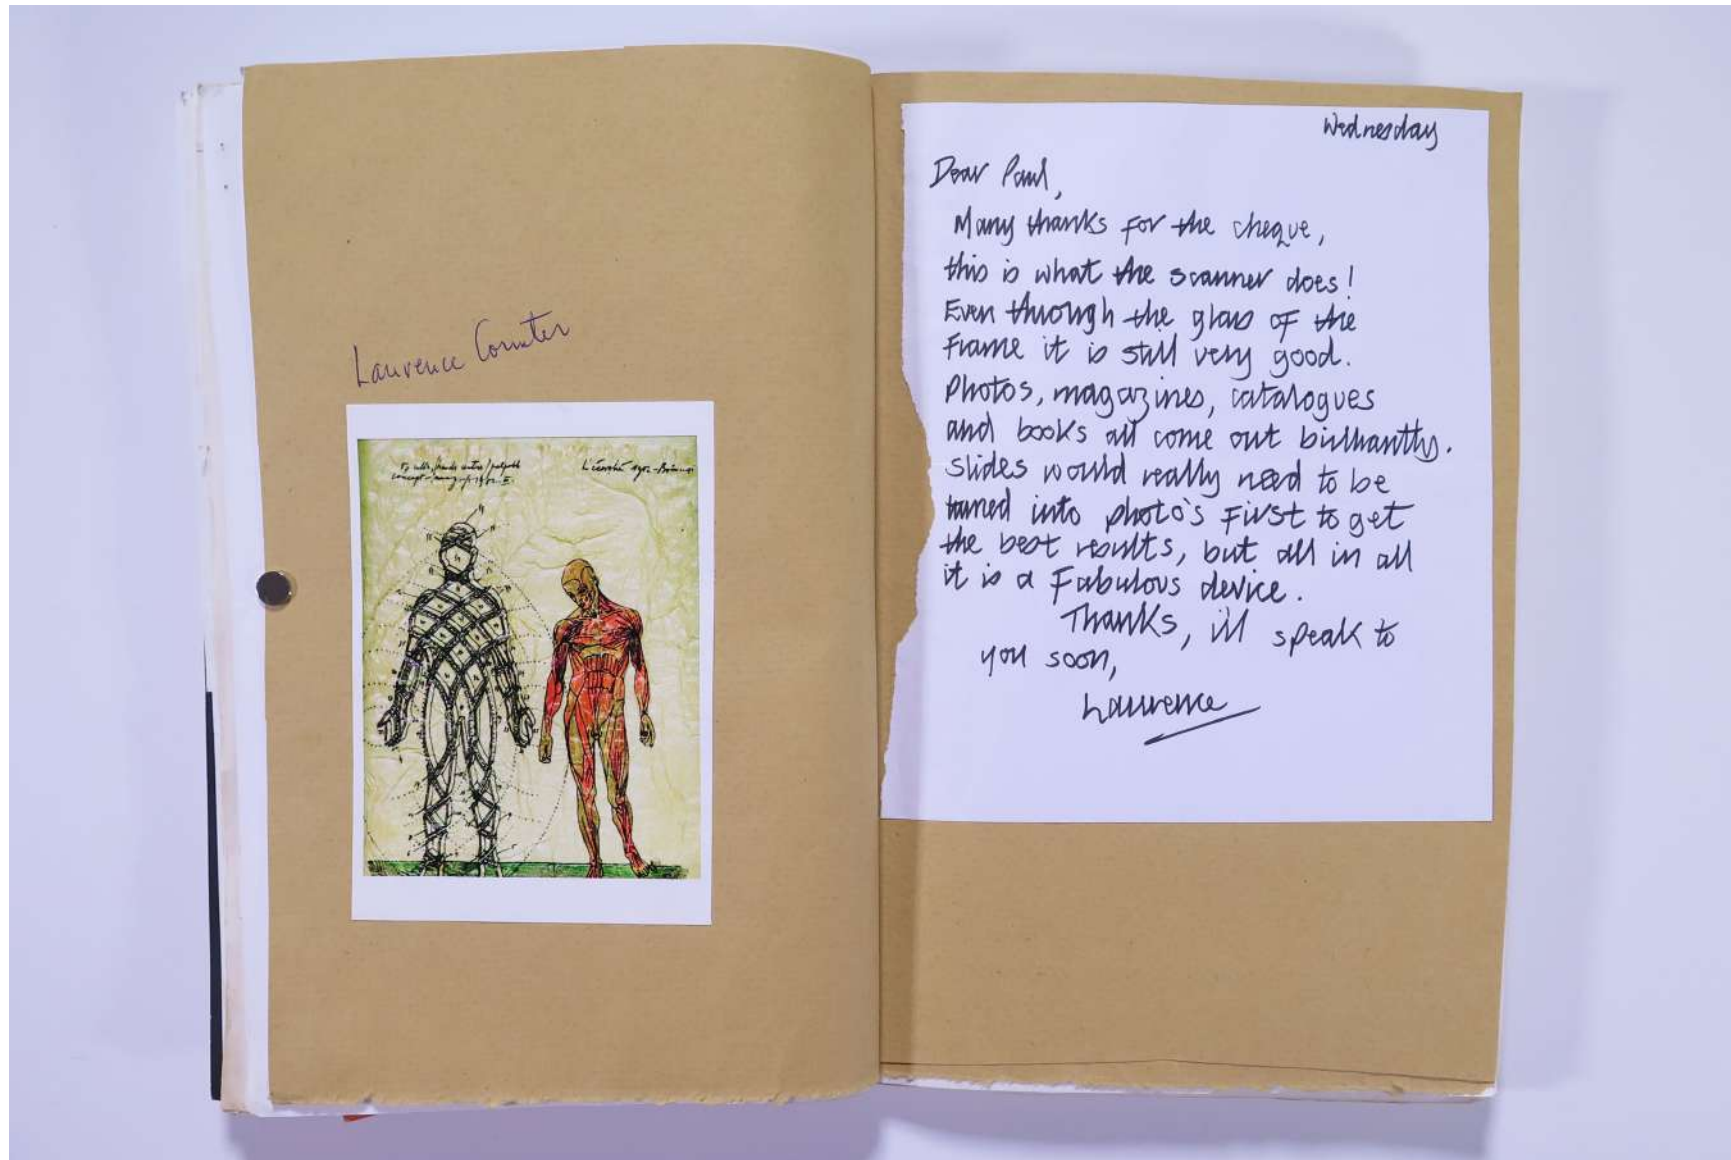 Laurence
Wednesday
Dear Paul,
Many thanks for the cheque,
this is what the scanner does!
Even through the glass of the
Frame it is still very good.
Photos, magazines, catalogues
and books all come out brilliantly.
Slides would really need to be
turned into photo's First to get
the best results, but all in all
it is a Fabulous device.
Thanks, i'll speak to
you soon,
Laurence